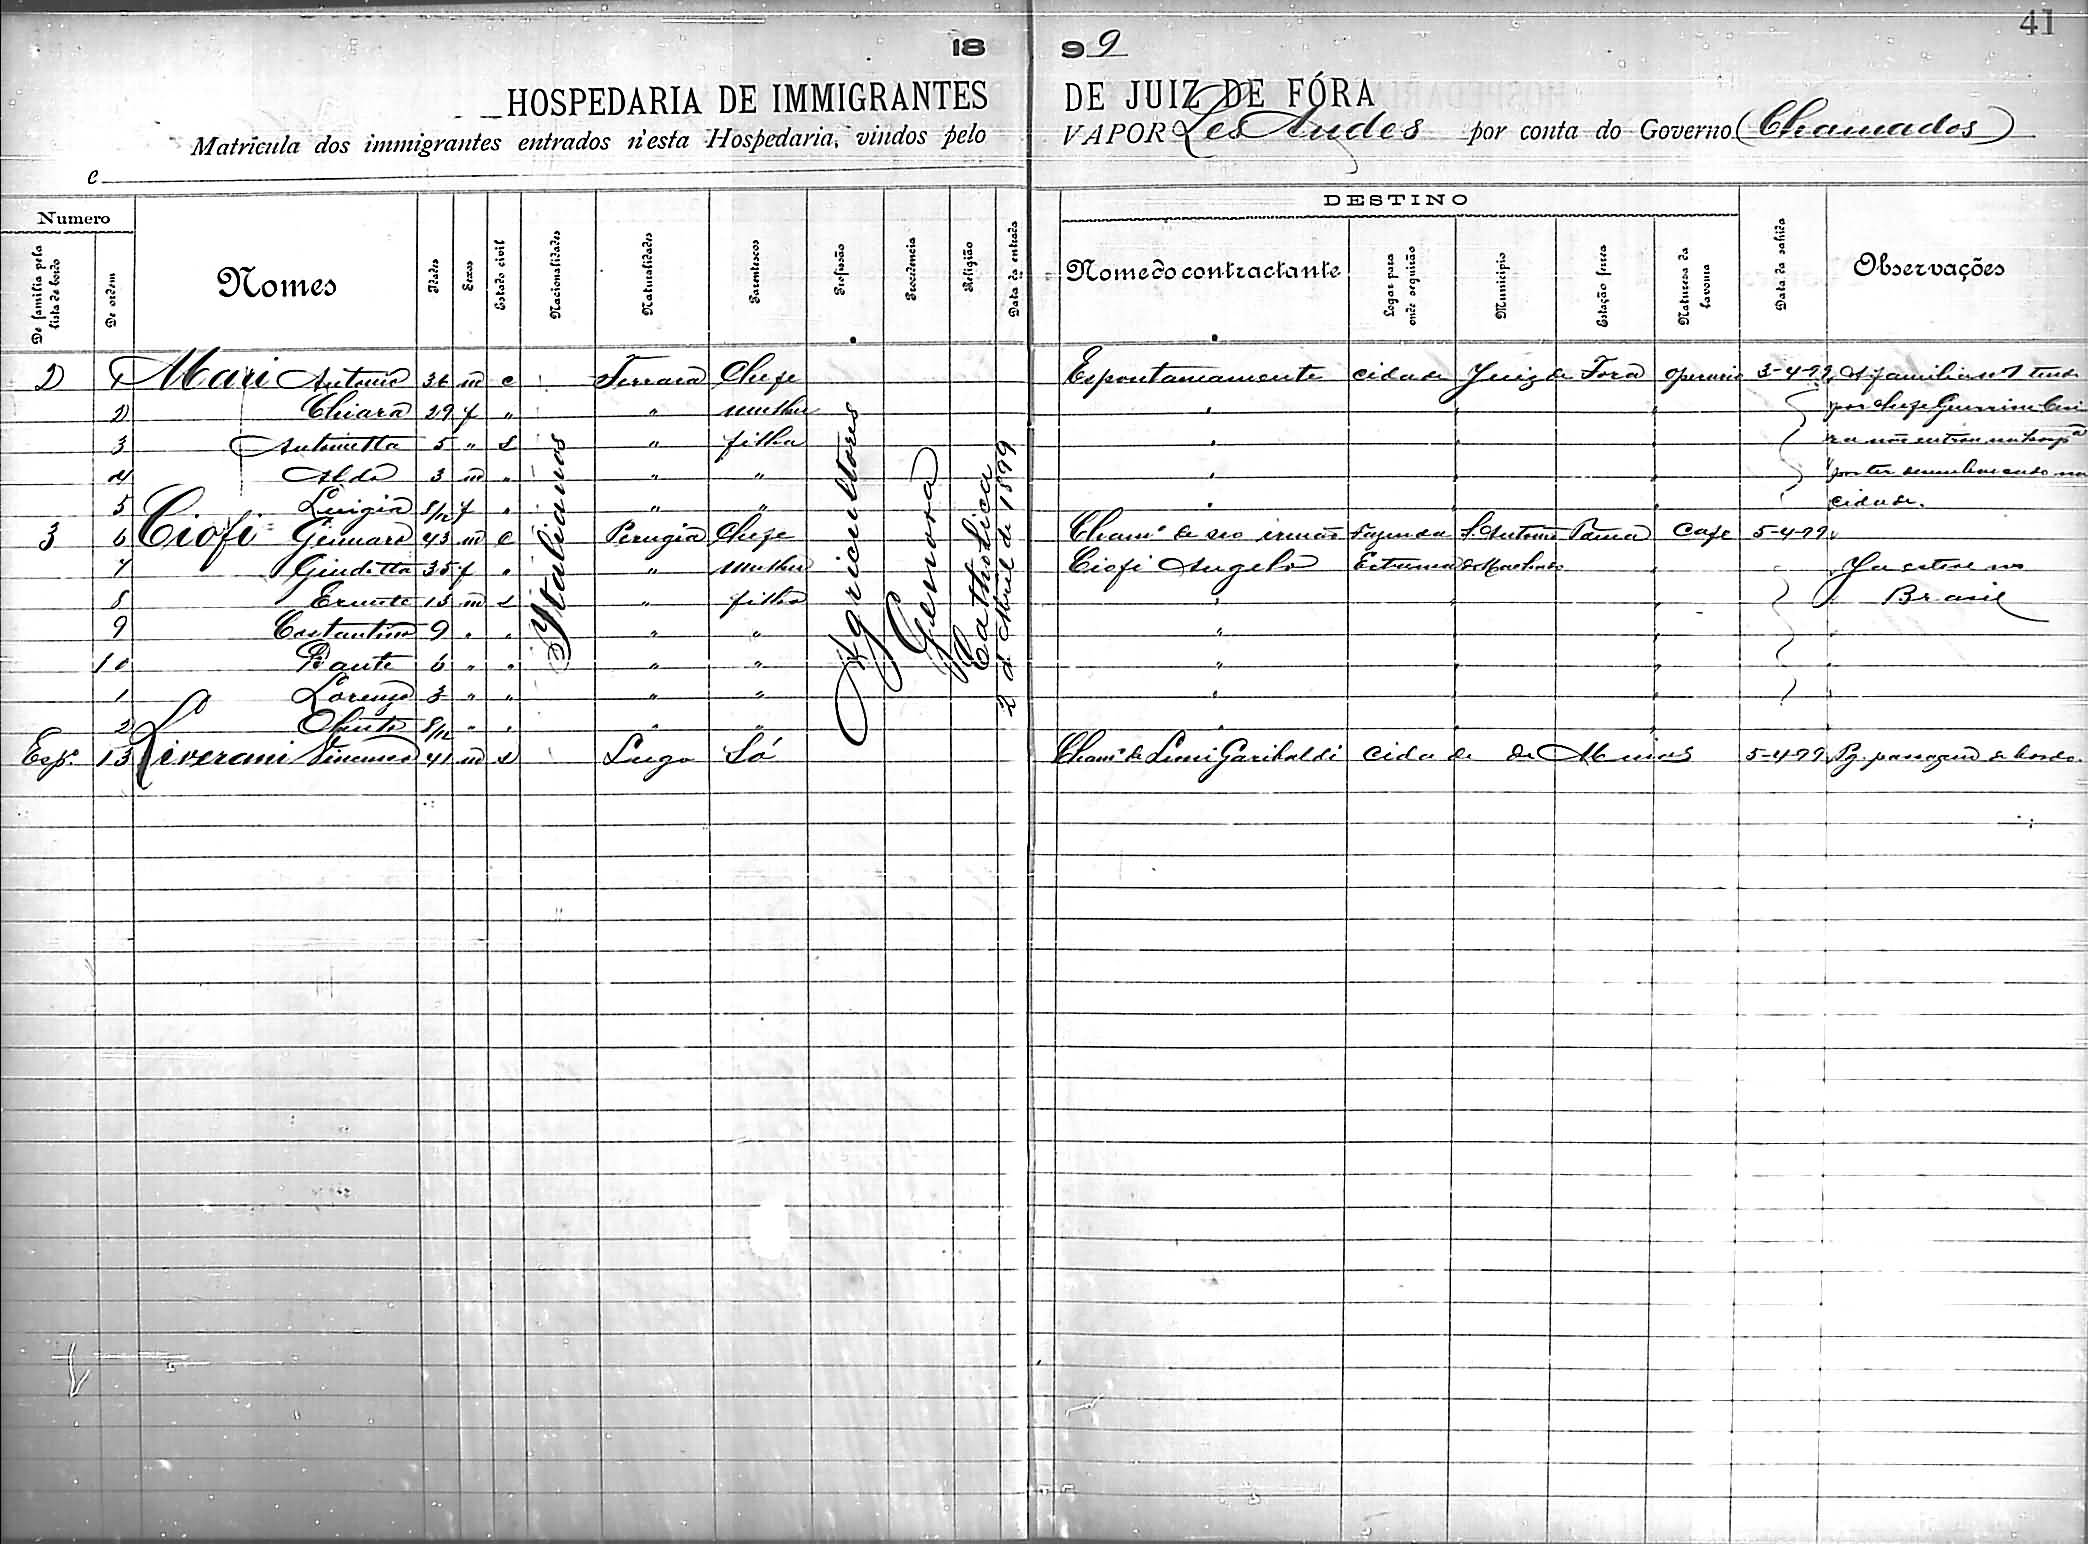 41
18 99
HOSPEDARIA DE IMMIGRANTES DE JUIZ DE FÓRA
Matricula dos immigrantes entrados n'esta Hospedaria, vindos pelo VAPOR Les Andes por conta do Governo (Chamados)
e
Numero
De familia pela lista de bordo
De ordem
Nomes
Idades
Sexos
Estado civil
Nacionalidades
Naturalidades
Parentescos
Profissão
Procedencia
Religião
Data da entrada
DESTINO
Nome do contractante
Logar para onde seguirão
Municipio
Estação ferrea
Natureza da lavoura
Data da sahida
Observações
2 1 Mari Antonio 36 m c Ferrara Chefe Espontaneamente cidade Juiz de Fora operario 3-4-99 A familia nº 1 tendo
2 Chiara 29 f " " mulher por chefe Guerrino
3 Antonietta 5 " s " filha não entrou na hospª
4 Aldo 3 m " " " por ter desembarcado na
5 Luigia 8/12 f " " " cidade.
3 6 Ciofi Gennaro 43 m c Perugia Chefe Cham. de seo irmão Fazenda S. Antonio Pama Cafe 5-4-99
7 Giuditta 35 f " " mulher Ciofi Angelo do Machado Ja esteve no
8 Ernesto 13 m s " filho " Brasil
9 Costantino 9 " " " " "
10 Dante 6 " " " " "
1 Lorenzo 3 " " " " "
2 8/12 " " " " "
Esp. 13 Liverani Vincenzo 41 m s Lugo Só Cham. de Garibaldi cidade de Minas 5-4-99 Pg. passagem de bordo.
Italianos
Agricultores
Genova
Catholica
2 de Abril de 1899